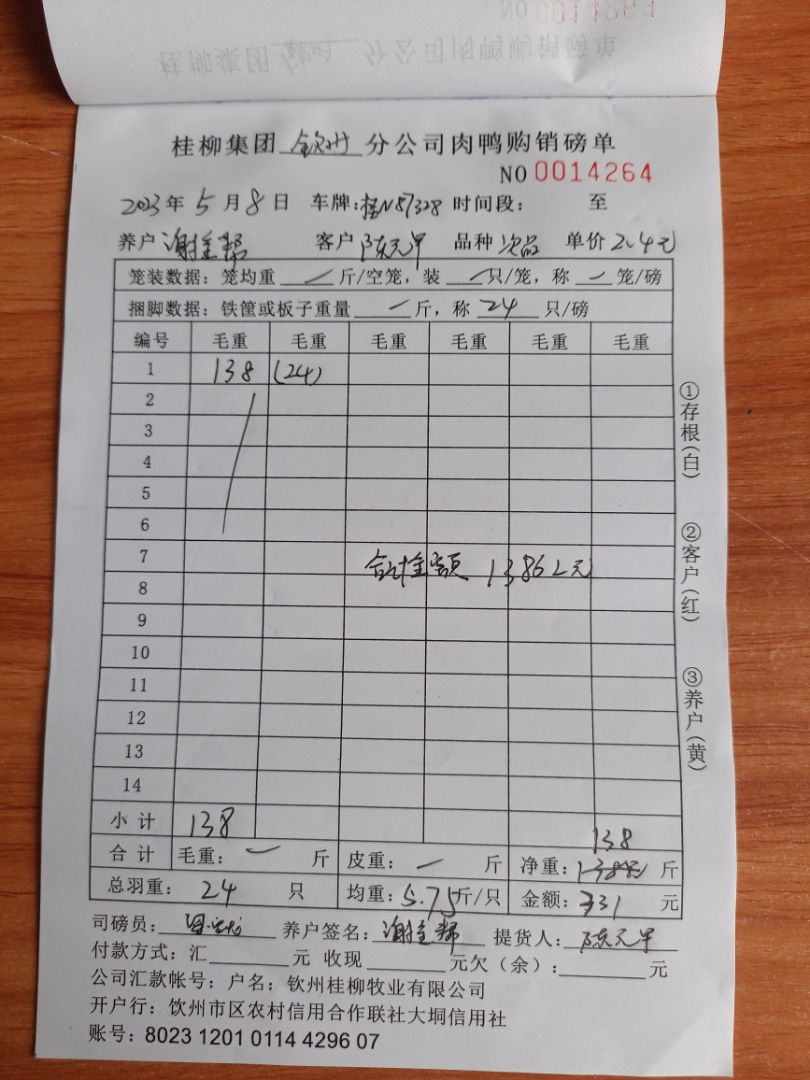 桂柳集团 钦州 分公司肉鸭购销磅单
NO 0014264
2023 年 5 月 8 日 车牌:桂N87328 时间段: 至
养户 谢金帮 客户 陈元军 品种 次品 单价 2.4元
笼装数据:笼均重 斤/空笼,装 只/笼,称 笼/磅
捆脚数据:铁筐或板子重量 斤,称 24 只/磅
编号 毛重 毛重 毛重 毛重 毛重 毛重
1 138 (24)
2
3
4
5
6
7 合计金额 13862元
8
9
10
11
12
13
14
小计 138
138
合计 毛重: 斤 皮重: 斤 净重: 斤
总羽重: 24 只 均重: 5.75 斤/只 金额: 331 元
司磅员: 养户签名: 谢金帮 提货人: 陈元军
付款方式:汇 元 收现 元欠(余): 元
公司汇款帐号:户名:钦州桂柳牧业有限公司
开户行:饮州市区农村信用合作联社大垌信用社
账号:8023 1201 0114 4296 07
①存根(白)
②客户(红)
③养户(黄)